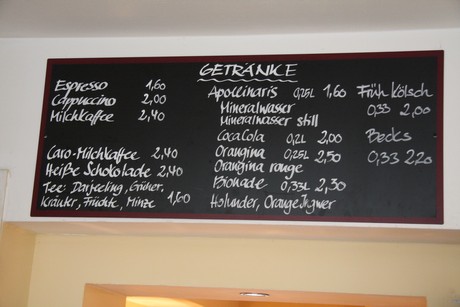 GETRÄNKE
Espresso 1,60
Cappuccino 2,00
Milchkaffee 2,40
Caro-Milchkaffee 2,40
Heiße Schokolade 2,40
Tee: Darjeeling, Grüner,
Kräuter, Früchte, Minze 1,60
Apollinaris 0,25L 1,60
Mineralwasser
Mineralwasser still
Coca Cola 0,2L 2,00
Orangina 0,25L 2,50
Orangina rouge
Bionade 0,33L 2,30
Holunder, Orange Ingwer
Früh Kölsch
0,33 2,00
Becks
0,33 2,20